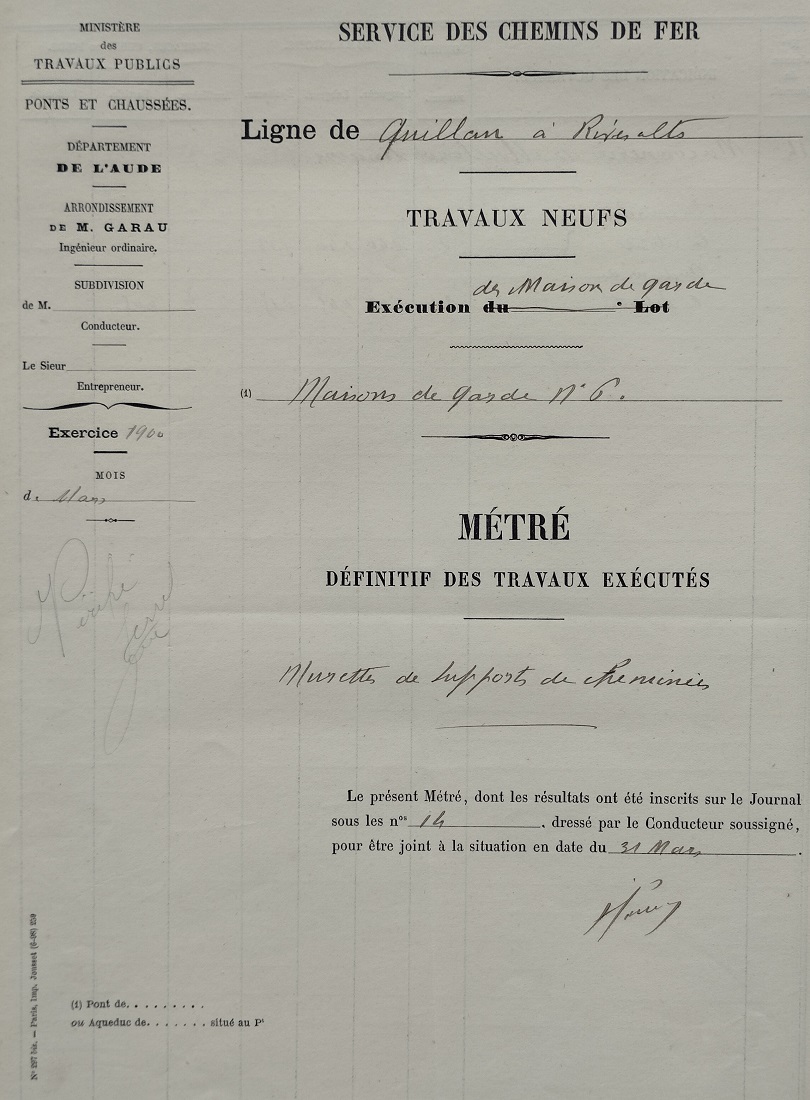 MINISTÈRE
des
TRAVAUX PUBLICS
PONTS ET CHAUSSÉES.
DÉPARTEMENT
DE L'AUDE
ARRONDISSEMENT
DE M. GARAU
Ingénieur ordinaire.
SUBDIVISION
de M.
Conducteur.
Le Sieur
Entrepreneur.
Exercice 1900
MOIS
de Mars
SERVICE DES CHEMINS DE FER
Ligne de Quillan à Rivesalts
TRAVAUX NEUFS
des Maison de garde
Exécution du e Lot
(1) Maisons de garde N° 6.
MÉTRÉ
DÉFINITIF DES TRAVAUX EXÉCUTÉS
Murettes de supports de cheminées
Le présent Métré, dont les résultats ont été inscrits sur le Journal
sous les nos 14 , dressé par le Conducteur soussigné,
pour être joint à la situation en date du 31 Mars .
(1) Pont de. . . . . . . . .
ou Aqueduc de. . . . . . . situé au Pt
N° 297 bis. — Paris, Imp. Jousset (6-98) 259